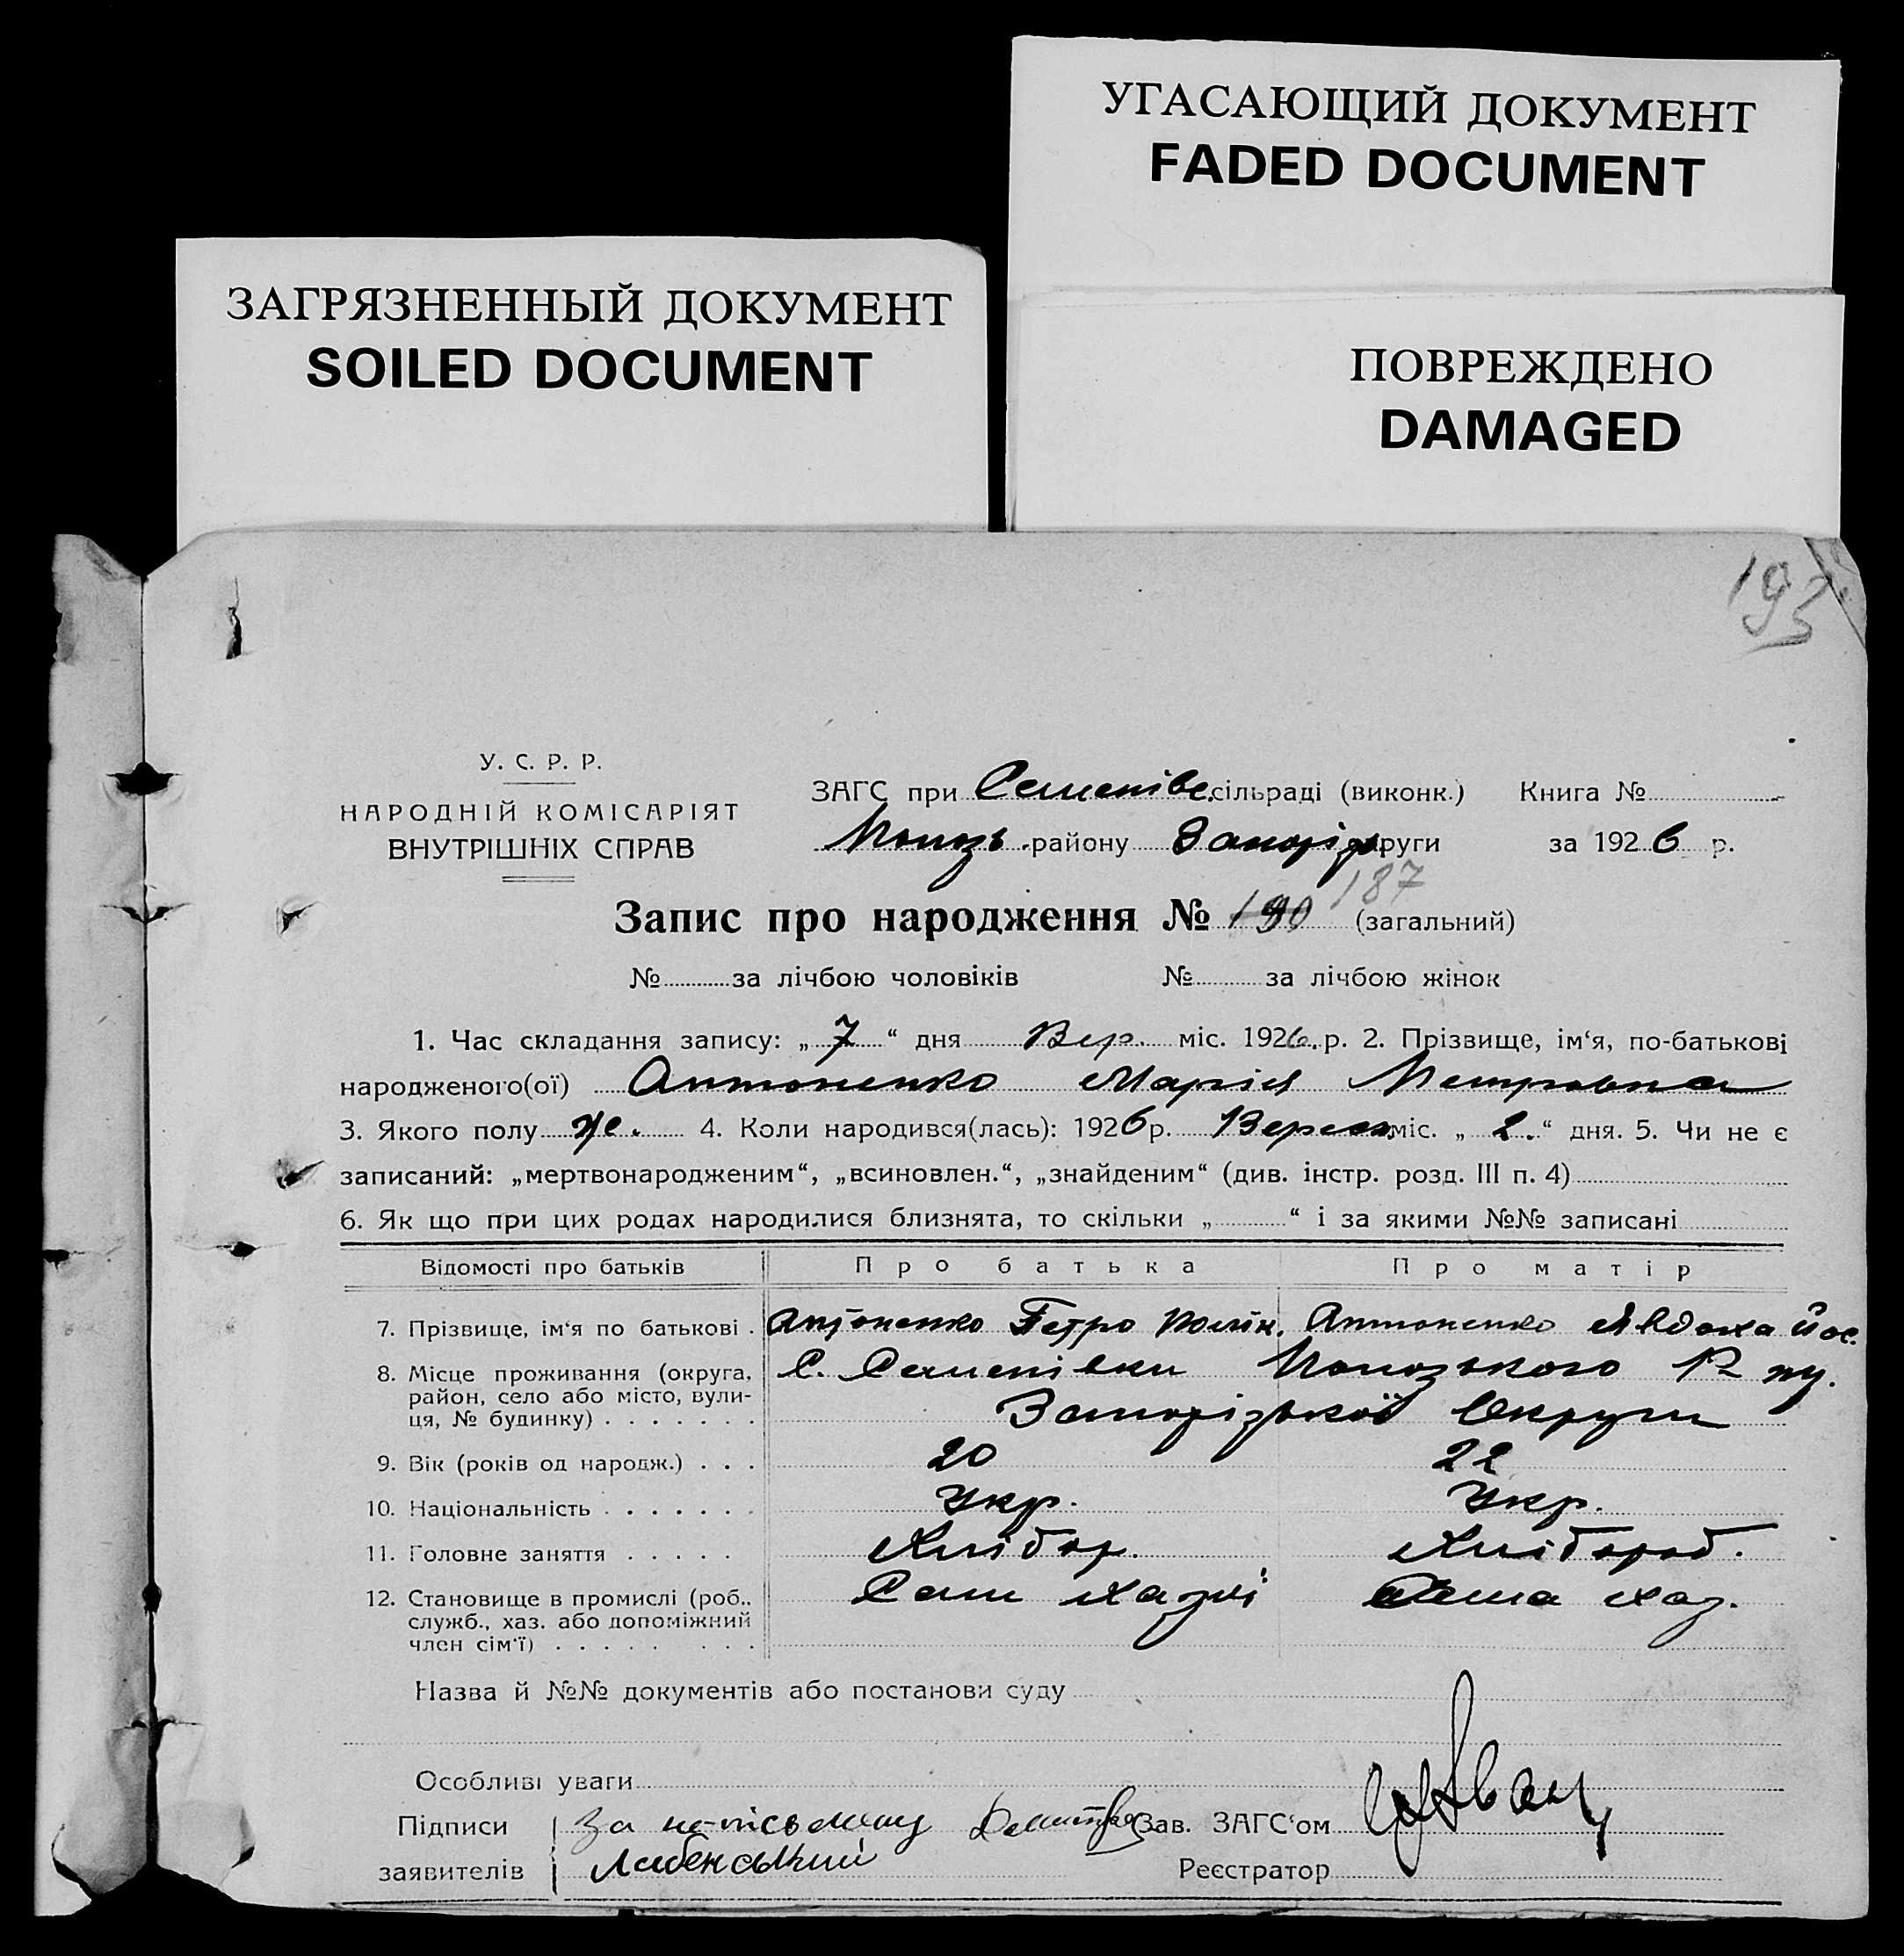 УГАСАЮЩИЙ ДОКУМЕНТ
FADED DOCUMENT
ЗАГРЯЗНЕННЫЙ ДОКУМЕНТ
SOILED DOCUMENT
ПОВРЕЖДЕНО
DAMAGED
193
У. С. Р. Р.
НАРОДНІЙ КОМІСАРІЯТ
ВНУТРІШНІХ СПРАВ
ЗАГС при Семенівс. сільраді (виконк.) Книга №
району Запоріз. округи за 1926 р.
187
Запис про народження № 190 (загальний)
№ за лічбою чоловіків № за лічбою жінок
1. Час складання запису: „ 7 “ дня Вер. міс. 1926 р. 2. Прізвище, ім‘я, по-батькові
народженого(ої) Антоненко Марія Петровна
3. Якого полу же. 4. Коли народився(лась): 1926 р. Вересн. міс. „ 2. “ дня. 5. Чи не є
записаний: „мертвонародженим“, „всиновлен.“, „знайденим“ (див. інстр. розд. III п. 4)
6. Як що при цих родах народилися близнята, то скільки „ “ і за якими №№ записані
Відомості про батьків Про батька Про матір
7. Прізвище, ім‘я по батькові . Антоненко Петро Антоненко Явдоха Йос.
8. Місце проживання (округа, С. Семенівки
район, село або місто, вули-
ця, № будинку) . . . . . . . Запорізької Округи
9. Вік (років од народж.) . . . 20 22
10. Національність . . . . . . Укр. Укр.
11. Головне заняття . . . . . Хлібор. Хлібороб.
12. Становище в промислі (роб., Сам хазяї Сама хаз.
служб., хаз. або допоміжний
член сім‘ї) . . . . . . . .
Назва й №№ документів або постанови суду
Особливі уваги
Підписи За неписьмену Зав. ЗАГС‘ом
заявителів Реєстратор